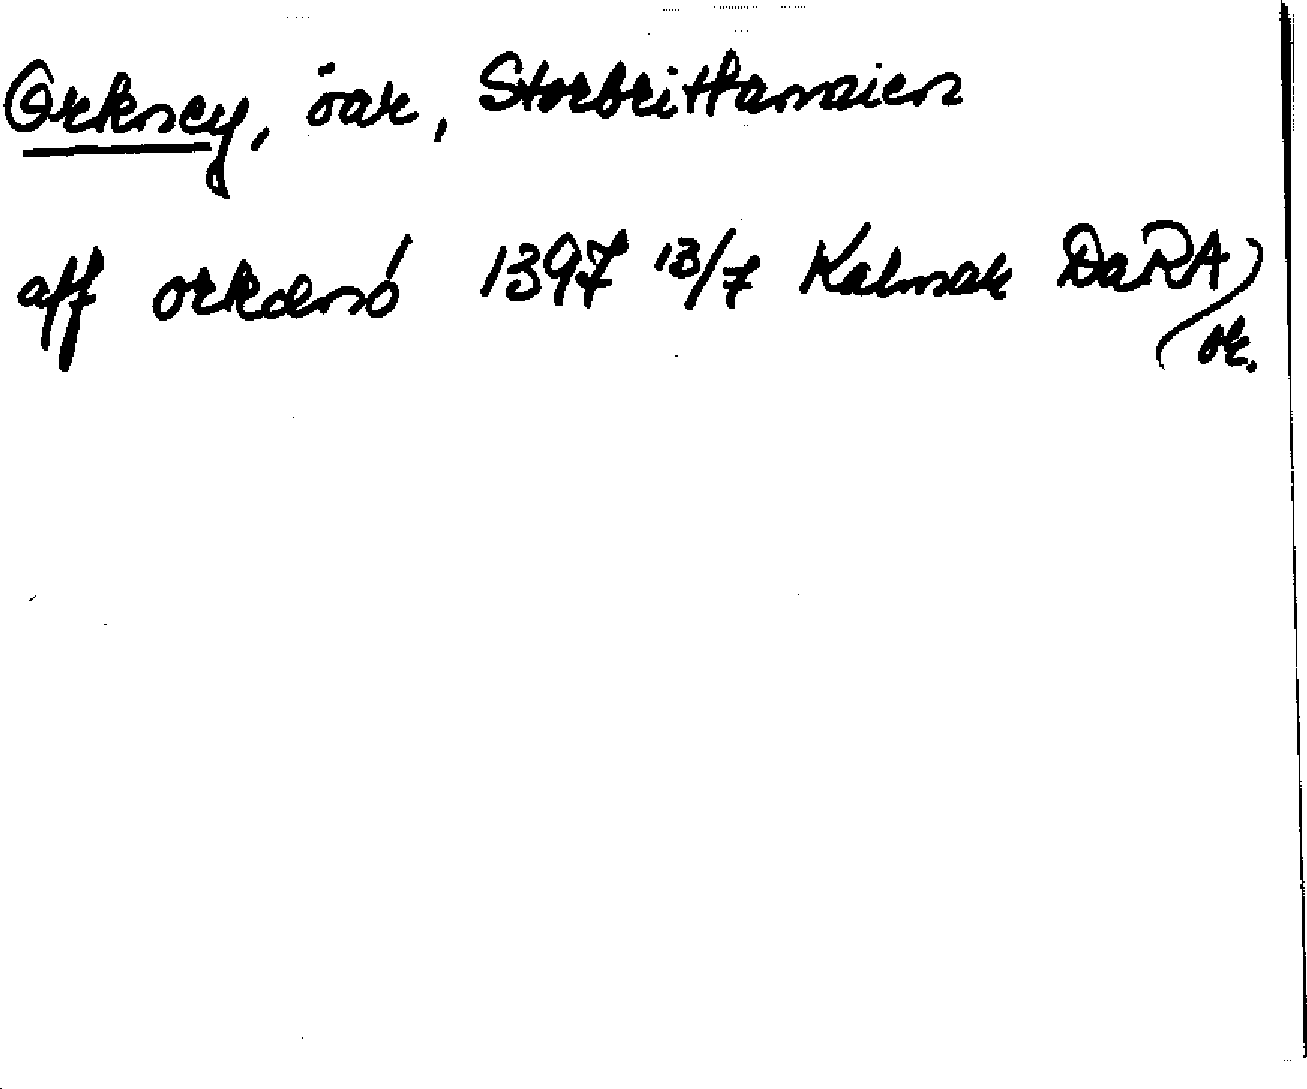 Orkney, öar, Storbrittannien
aff orkænó 1397 13/7 Kalmar DaRA
or.